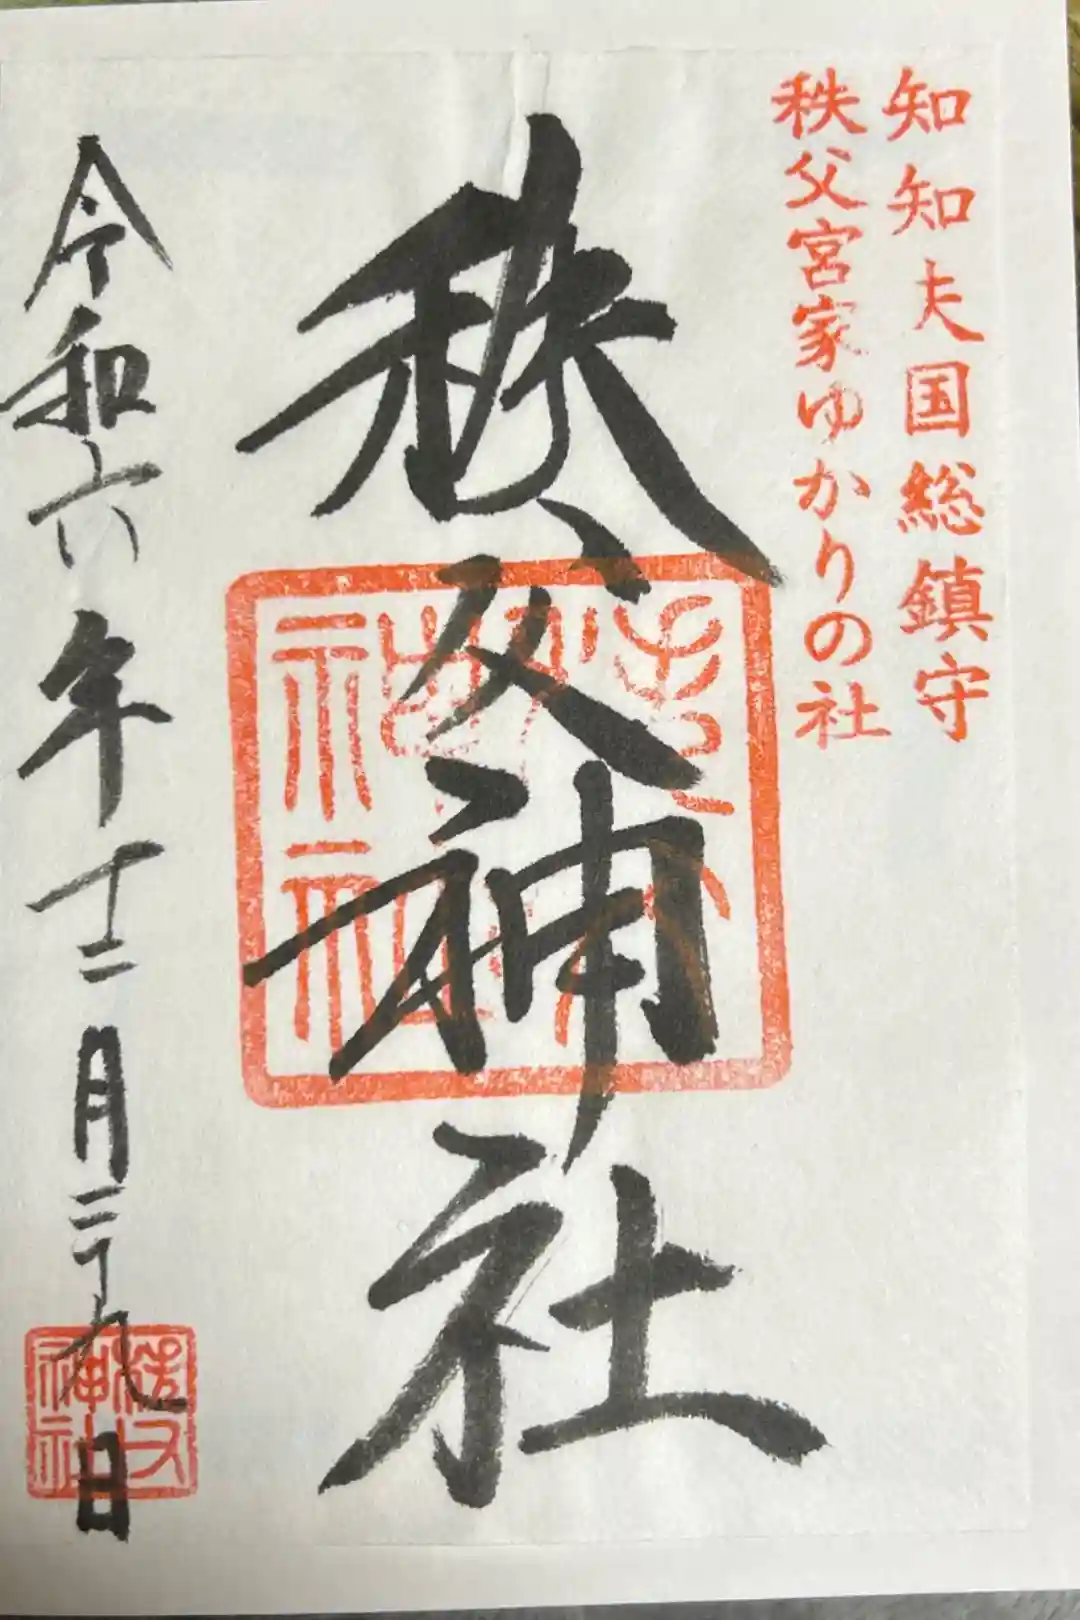 知知夫国総鎮守
秩父宮家ゆかりの社
秩父神社
令和六年十二月二十九日
秩父神社